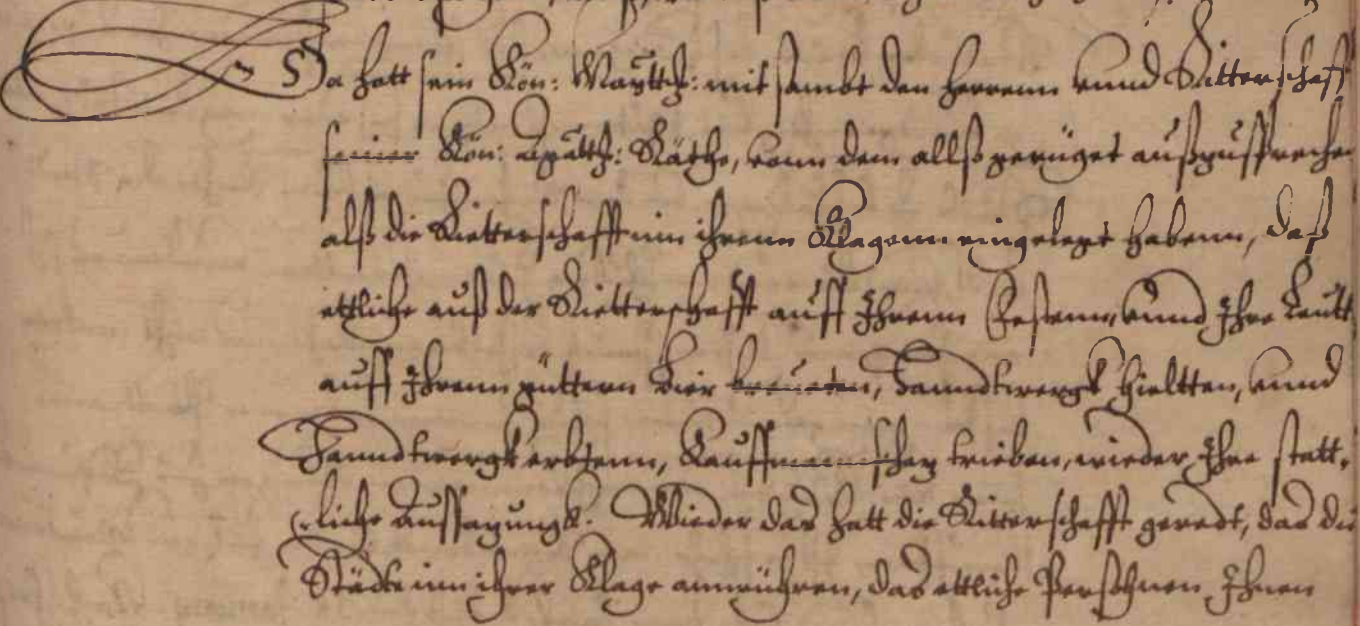 Da hatt sein Kön: Maÿttt: mit sambt den herrenn vnnd Ritterschafft
seiner Kön: Maÿtt: Räthe, vonn dem allß gerüget außzusprechen
alß die Ritterschafft inn ihrenn Klagenn eingelegt habenn, daß
ettliche auß der Ritterschafft auff Ihrenn vnnd Ihre Leutt
auff Ihrenn güttern Bier breueten, Hanndtwergk hieltten, vnnd
Hanndtwergk erbsenn, Kauffmannschaz trieben, wieder Ihre statt,
liche Aussazungk. Wieder das hatt die Ritterschafft geredt, das die
Städte inn ihrer Klage anrühren, das ettliche Persohnen Ihnen